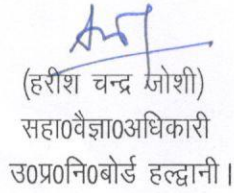 (हरीश चन्द्र जोशी)
सहा0वैज्ञा0अधिकारी
उ0प्र0नि0बोर्ड हल्द्वानी।